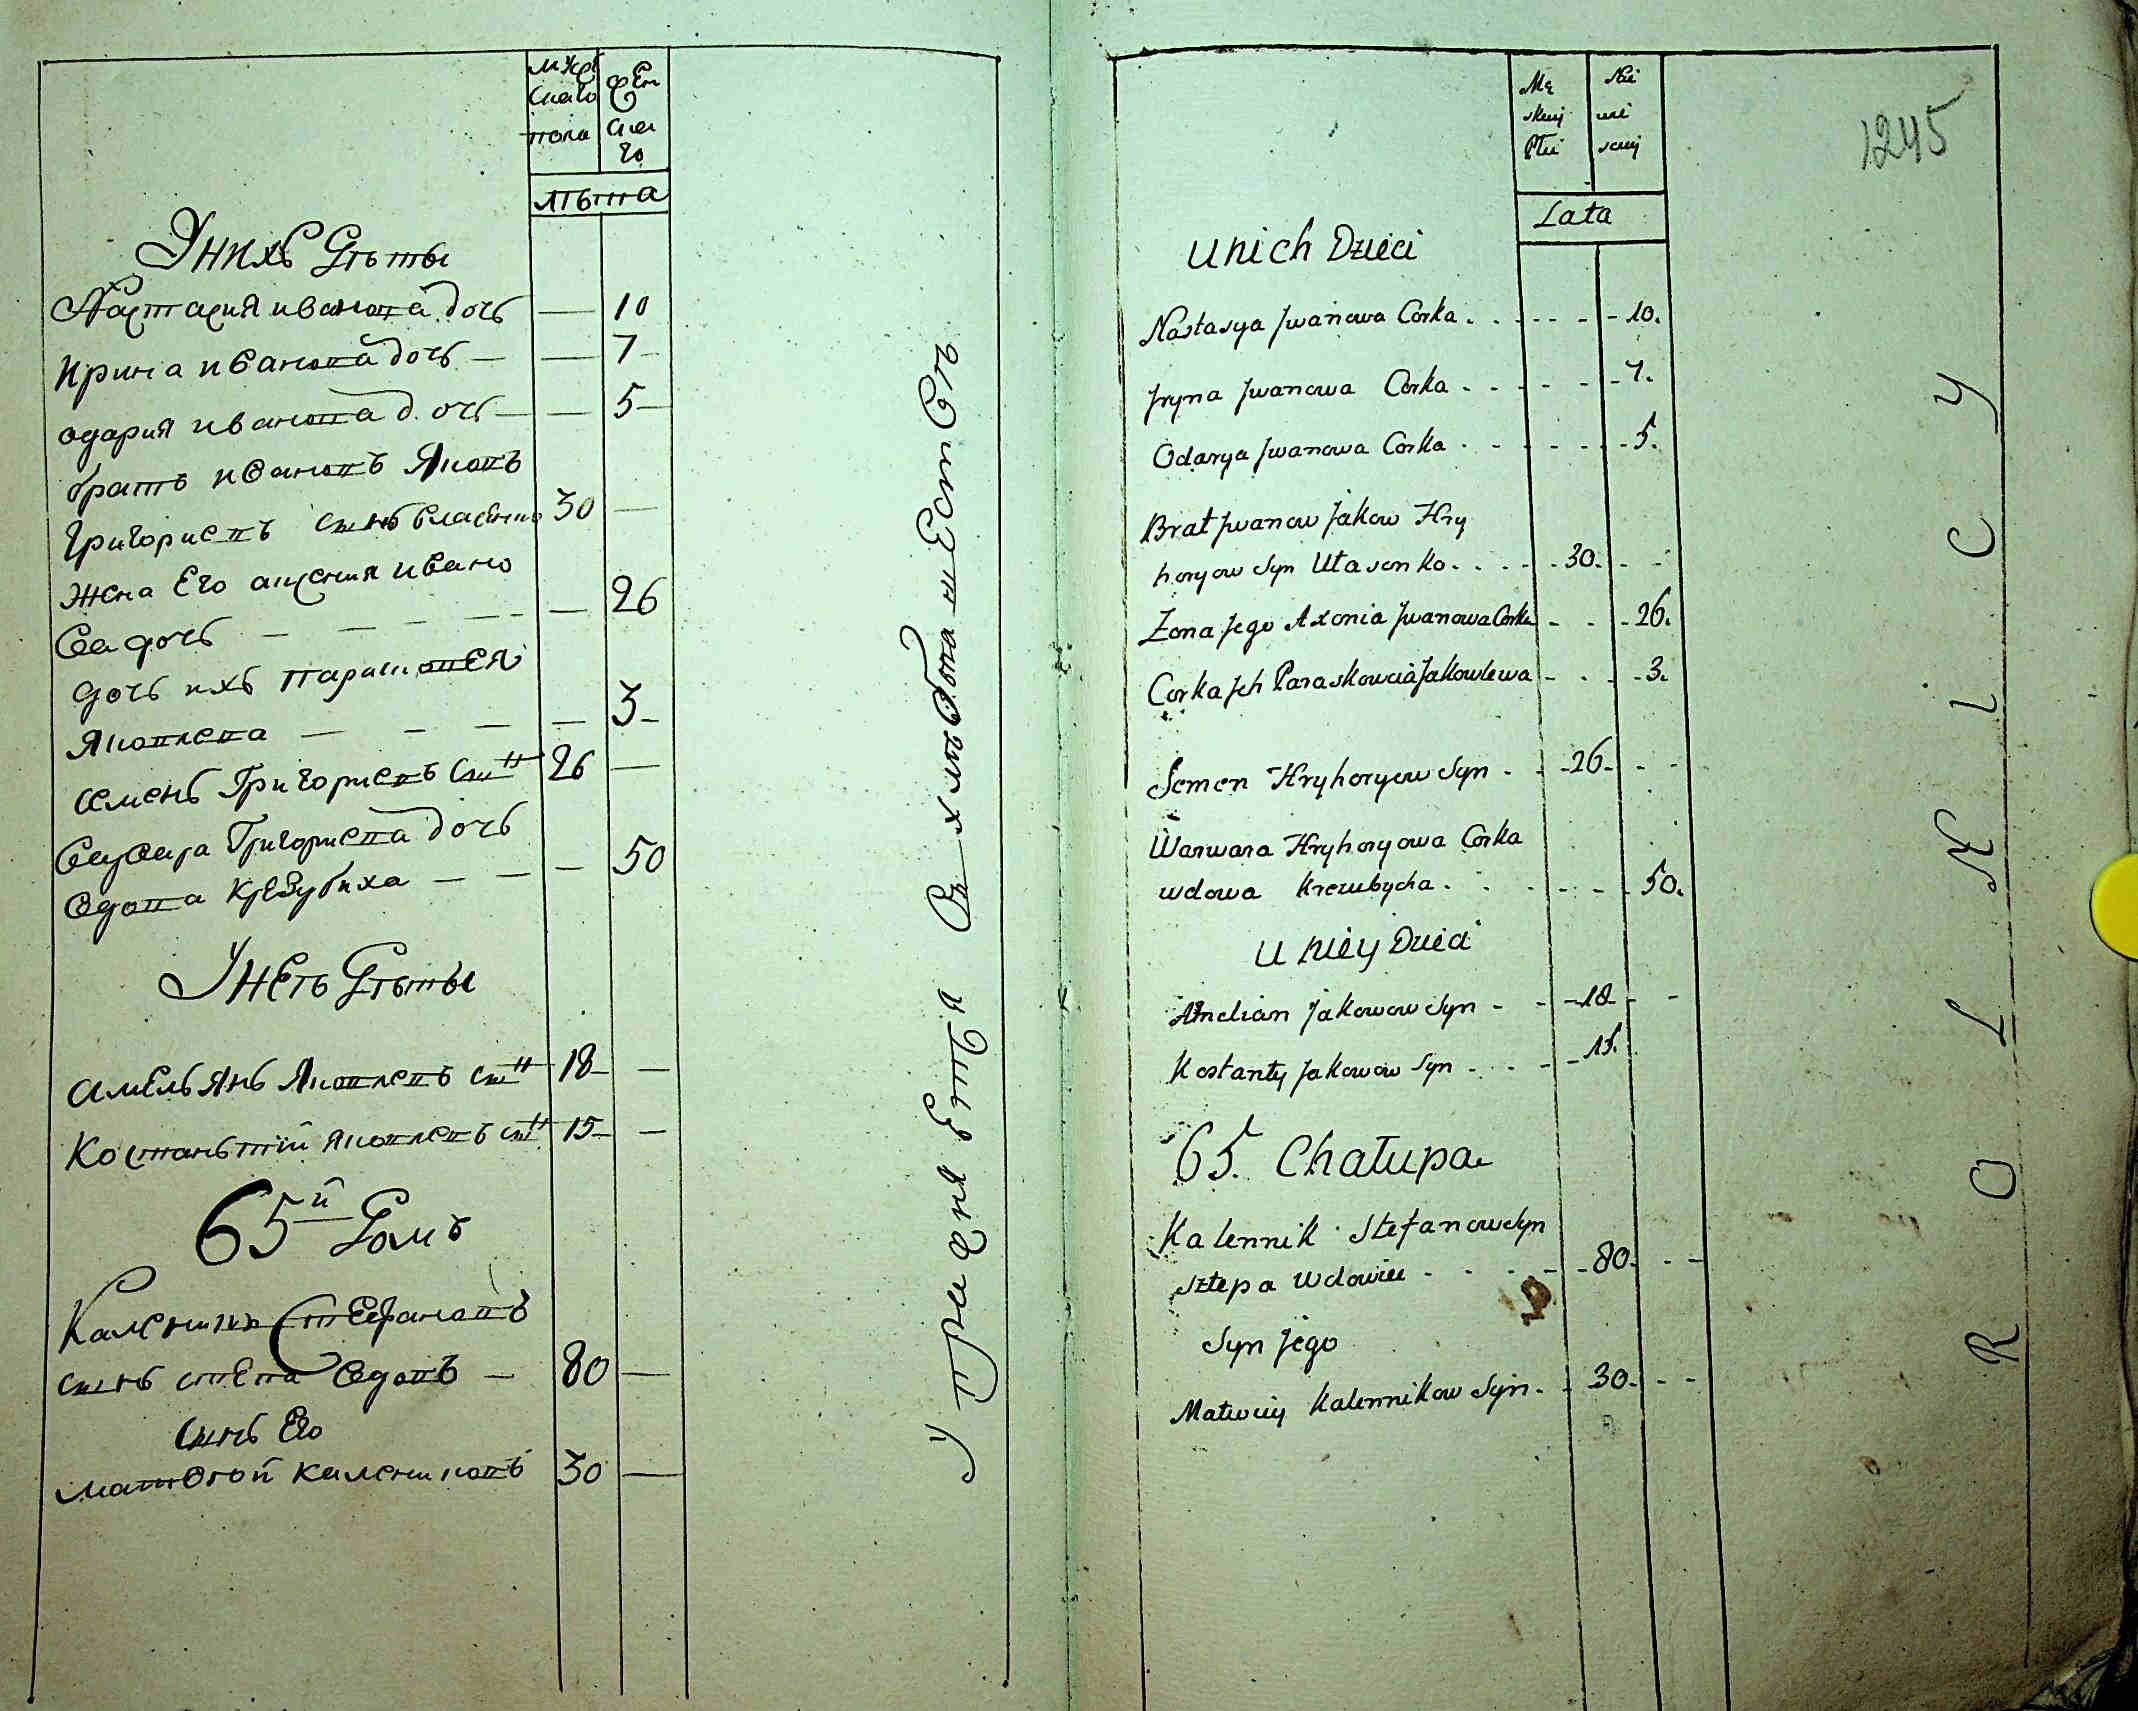 мужескаго пола
женскаго
лѣта
У нихъ Дѣты
Настасия иванова дочь — 10
Ирина иванова дочь — — 7
одария иванова дочь — — 5
братъ ивановъ Яковъ
Григориевъ сынъ 30 —
Жена Его аксения ивано
ва дочь — — — — — 26
дочь ихъ парасковея
Яковлева — — — — 3
семенъ Григориевъ сынъ 26 —
варвара Григориева дочь
вдова крезубиха — — — 50
У неѣ Дѣты
амельянъ Яковлевъ сынъ 18 —
Костаньтий яковлевъ сынъ 15 —
65й Домъ
Каленикъ Стефановъ
сынъ степа вдовъ — 80 —
сынъ Его
матвѣй калениковъ 30 —
1245
Mę skiej Płci
Nie wie sciej
Lata
U nich Dzieci
Nastasya Jwanowa Corka . . - - - - 10.
Jryna Jwanowa Corka . . - - - - 7.
Odarya Jwanowa Corka . - - - - - 5.
Brat Jwanow Jakow Hry
horyow Syn Ułasenko . . . - - 30. - -
Zona Jego Axenia Jwanowa Corka - - - 26.
Corka Jch Paraskowcia Jakowlewa - . - - 3.
Semen Hryhoryow Syn . - - 26. - -
Warwara Hryhoryowa Corka
wdowa Krezubycha . . - - - - 50.
U niey Dzieci
Amelian Jakowow Syn - - - 18 - -
Kostanty Jakowow Syn . . - - 15.
65. Chałupa
Kalennik Stefanow Syn
Sztepa Wdowiec . . . - - 80. - -
Syn Jego
Matwiy Kalennikow Syn . - 30. - -
R O L S K I C Y